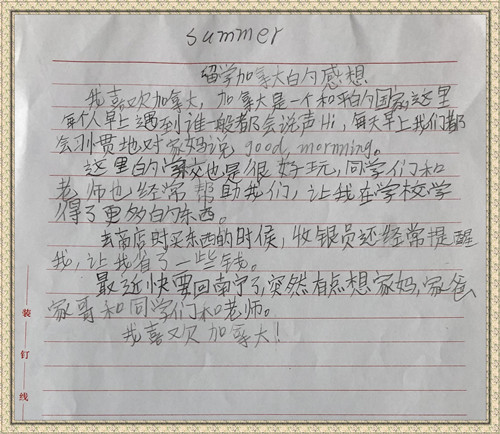 summer
留学加拿大的感想
我喜欢加拿大,加拿大是一个和平的国家,这里
每个人早上遇到谁一般都会说声Hi,每天早上我们都
会习惯地对家妈说good morming。
这里的学校也是很好玩,同学们和
老师也经常帮助我们,让我在学校学
得了更多的东西。
去商店时买东西的时候,收银员还经常提醒
我,让我省了一些钱。
最近快要回南宁了,突然有点想家妈,家爸
家哥和同学们和老师。
我喜欢加拿大!
装
订
线